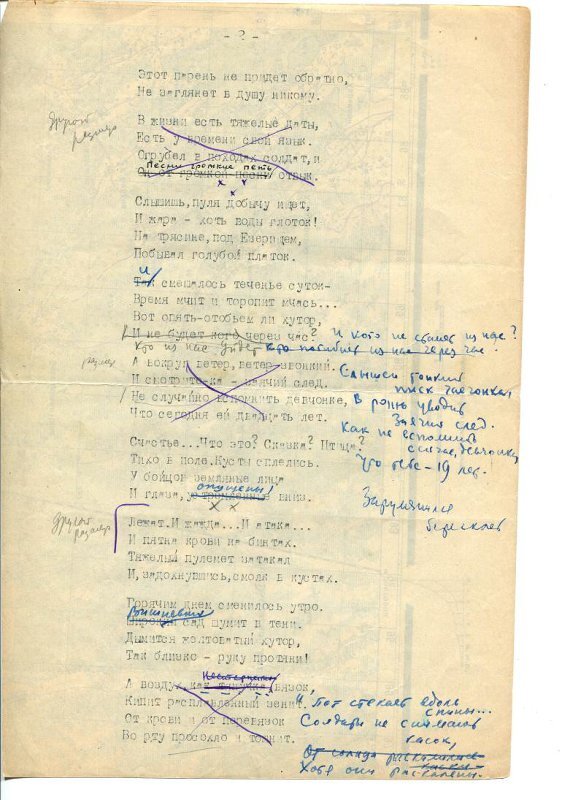 - 2 -
Этот парень не придет обратно,
Не заглянет в душу никому.
В жизни есть тяжелые даты,
Есть у времени свой язык.
другой размер
Огрубел в походах солдат, и
Песни громкие петь
Он от громкой песни отвык.
Слышишь, пуля добычу ищет,
И жара - хоть воды глоток!
На трясине, под Езерищем,
Побывал голубой платок.
И
Так смешалось теченье суток-
Время мчит и торопит мчась...
Вот опять-отобьем ли хутор,
И не будет кого через час?
И кого не станет из нас?
Кто из нас
кто погибнет из нас через час.
А вокруг ветер, ветер звонкий.
размер
И смотришь-ка - заячий след.
Не случайно вспомнить девчонке,
Что сегодня ей двадцать лет.
Слышен тонкий
писк
В рощу уводит
Заячий след.
Как не вспомнить
сейчас, девчонку,
Что тебе - 19 лет.
Счастье...Что это? Сказка? Птица?
Тихо в поле. Кусты сплелись.
У бойцов землянные лица
опущены!
И глаза, устремленные вниз.
Зарумянился
березняк
другой размер
Лежат. И жажда...И атака...
И пятна крови на бинтах.
Тяжелый пулемет затакал
И, задохнувшись, смолк в кустах.
Горячим днем сменилось утро.
Вишневый
Широкий сад шумит в тени.
Дымится желтоватый хутор,
Так близко - руку протяни!
А воздух, как вязок,
Кипит расплавленный зенит.
От крови и от перевязок
Во рту пресохло и томит.
Пот стекает вдоль
спины...
Солдаты не снимают
касок,
От солнца раскалились
каски-
Хоть они раскалены.